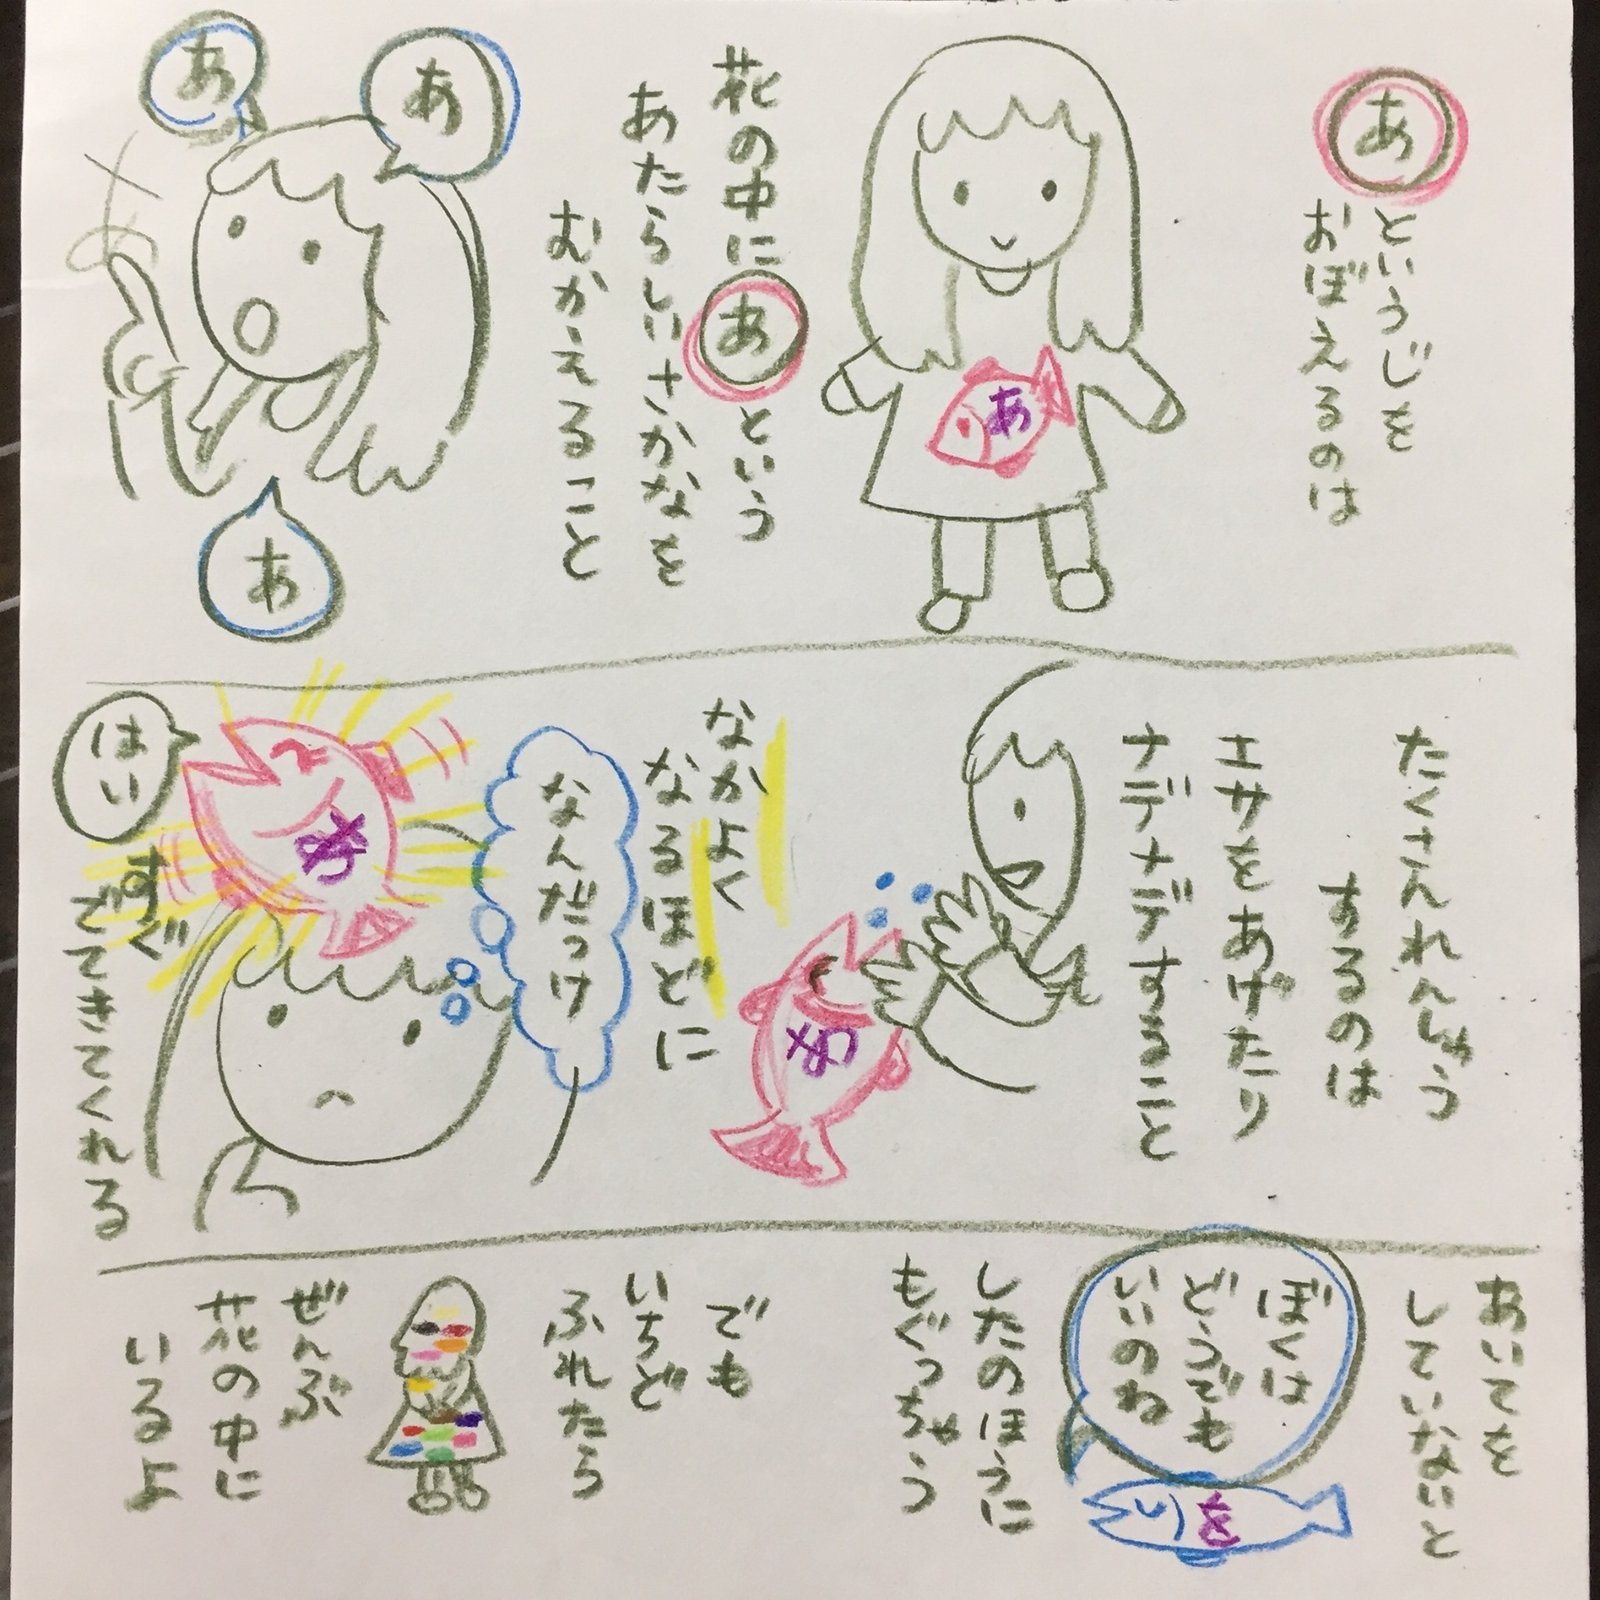 あというじを
おぼえるのは
あ
花の中にあという
あたらしいさかなを
むかえること
あ
あ
あ
あ
たくさんれんしゅう
するのは
エサをあげたり
ナデナデすること
あ
なかよく
なるほどに
なんだっけ
あ
はい
すぐ
でてきてくれる
あいてを
していないと
ぼくは
どうでも
いいのね
を
したのほうに
もぐっちゃう
でも
いちど
ふれたら
ぜんぶ
花の中に
いるよ